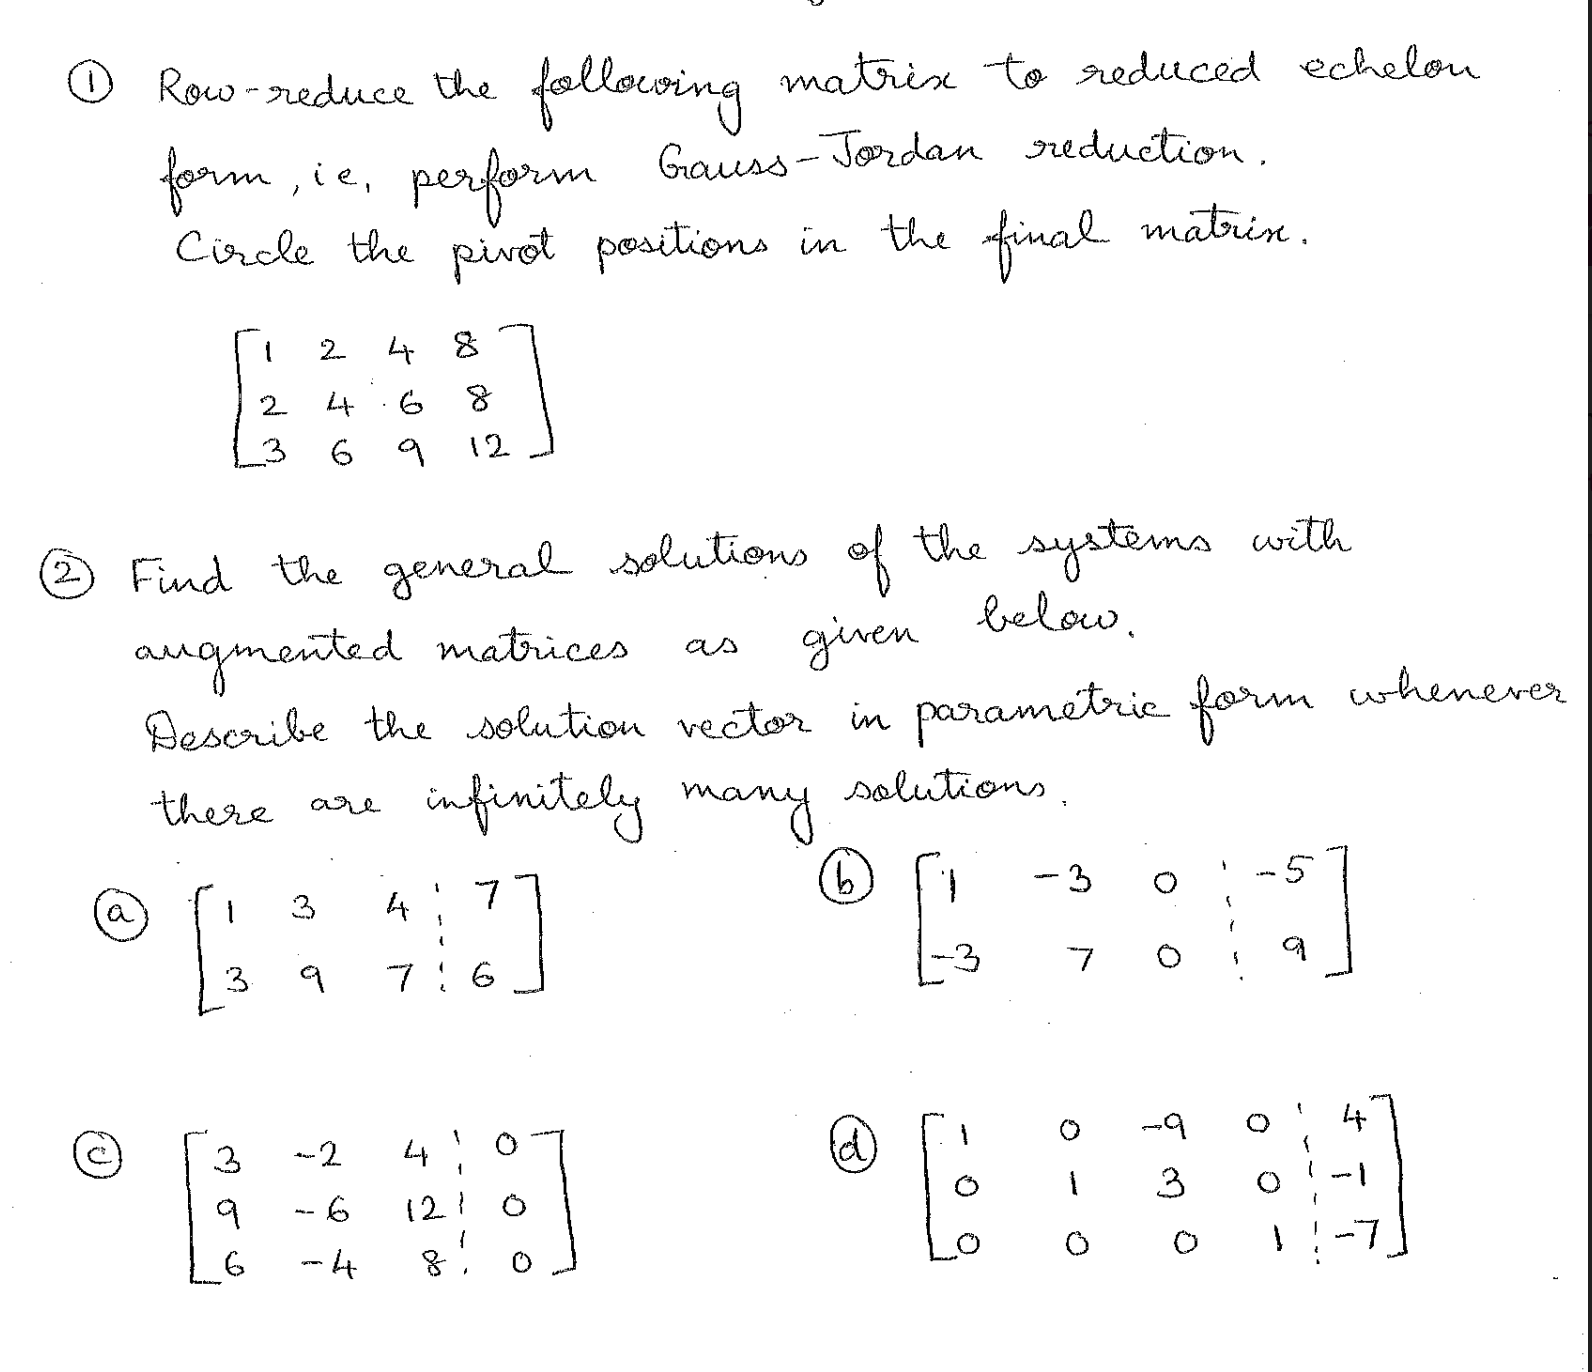 ① Row-reduce the following matrix to reduced echelon
form, ie, perform Gauss-Jordan reduction.
Circle the pivot positions in the final matrix.
[ 1 2 4 8
2 4 6 8
3 6 9 12 ]
② Find the general solutions of the systems with
augmented matrices as given below.
Describe the solution vector in parametric form whenever
there are infinitely many solutions.
ⓐ [ 1 3 4 ¦ 7
3 9 7 ¦ 6 ]
ⓑ [ 1 -3 0 ¦ -5
-3 7 0 ¦ 9 ]
ⓒ [ 3 -2 4 ¦ 0
9 -6 12 ¦ 0
6 -4 8 ¦ 0 ]
ⓓ [ 1 0 -9 0 ¦ 4
0 1 3 0 ¦ -1
0 0 0 1 ¦ -7 ]